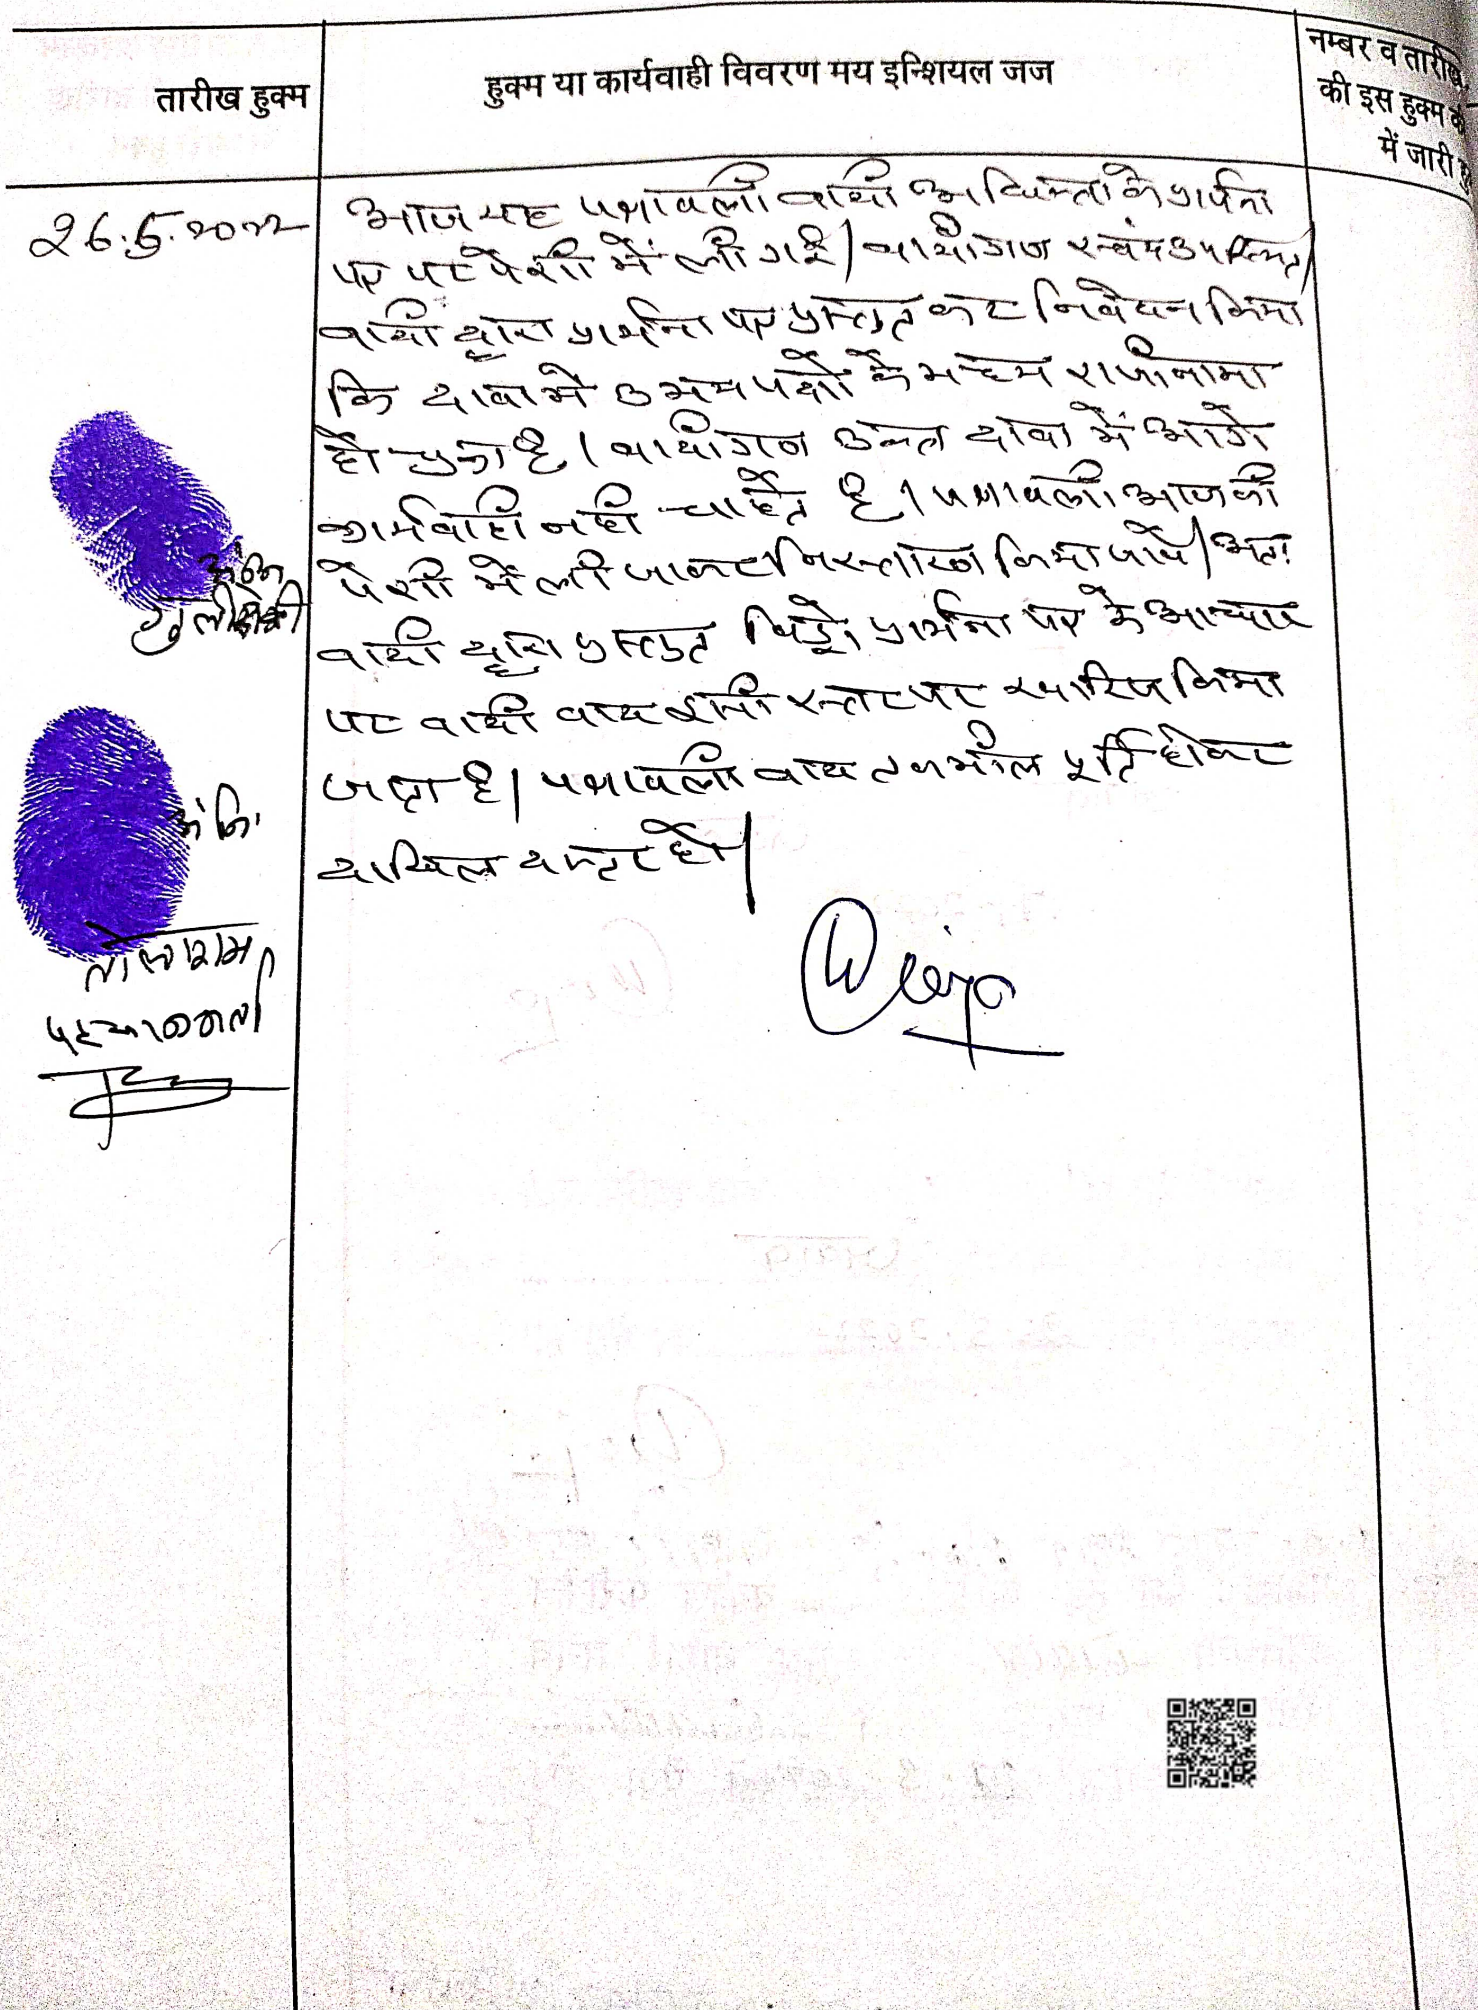 तारीख हुक्म
हुक्म या कार्यवाही विवरण मय इन्शियल जज
नम्बर व तारीख
की इस हुक्म के
में जारी
26.5.2022
आज यह पत्रावली वादी अधिवक्ता के प्रार्थना
पत्र पर पेशी में ली गई। वादीगण स्वंय उपस्थित।
वादी द्वारा प्रार्थना पत्र प्रस्तुत कर निवेदन किया
कि दावा में उभयपक्षों के मध्य राजीनामा
हो चुका है। वादीगण उक्त दावा में आगे
कार्यवाही नही चाहते है। पत्रावली आज की
पेशी में ली जाकर निस्तारण किया जावे। अतः
वादी द्वारा प्रस्तुत विड्रो प्रार्थना पत्र के आधार
पर वादी वाद इसी स्तर पर खारिज किया
जाता है। पत्रावली बाद तकमील पूर्ति होकर
दाखिल दफ्तर हो।
अं. नि.
अं नि.
तोलाराम